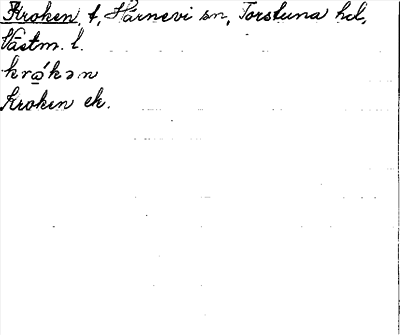 Kroken, t, Härnevi sn, Torstuna hd,
Västm. l.
krώ̲kən
Kroken ek.